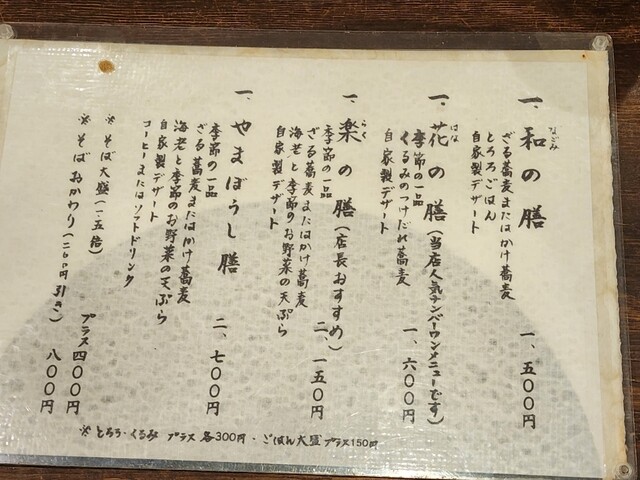 一、和の膳
なごみ
ざる蕎麦またはかけ蕎麦
とろろごはん
自家製デザート
一、五〇〇円
一、花の膳(当店人気ナンバーワンメニューです)
はな
季節の一品
くるみのつけだれ蕎麦
自家製デザート
一、六〇〇円
一、楽の膳(店長おすすめ)
らく
季節の一品
ざる蕎麦またはかけ蕎麦
海老と季節のお野菜の天ぷら
自家製デザート
二、一五〇円
一、やまぼうし膳
季節の一品
ざる蕎麦またはかけ蕎麦
海老と季節のお野菜の天ぷら
自家製デザート
コーヒーまたはソフトドリンク
二、七〇〇円
※そば大盛(一.五倍)
プラス四〇〇円
※そばおかわり(二〇〇円引き)
八〇〇円
※とろろ・くるみ プラス各300円・ごはん大盛プラス150円